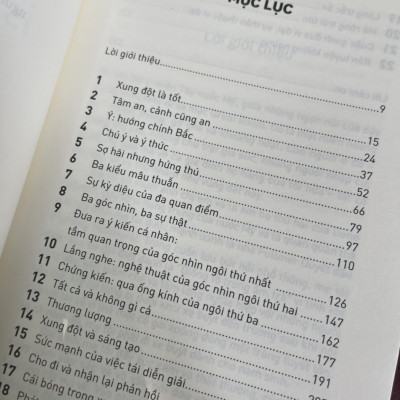 MỤC LỤC
Lời giới thiệu 9
1 Xung đột là tốt 15
2 Tâm an, cảnh cũng an 24
3 Ý: hướng chính Bắc 37
4 Chú ý và ý thức 52
5 Sợ hãi nhưng hứng thú 66
6 Ba kiểu mâu thuẫn 79
7 Sự kỳ diệu của đa quan điểm 97
8 Ba góc nhìn, ba sự thật 110
9 Đưa ra ý kiến cá nhân:
tầm quan trọng của góc nhìn ngôi thứ nhất 126
10 Lắng nghe: nghệ thuật của góc nhìn ngôi thứ hai 147
11 Chứng kiến: qua ống kính của ngôi thứ ba 162
12 Tất cả và không gì cả 177
13 Thương lượng 191
14 Xung đột và sáng tạo
15 Sức mạnh của việc tái diễn giải
16 Cho đi và nhận lại phản hồi
17 Cái bóng trong
18